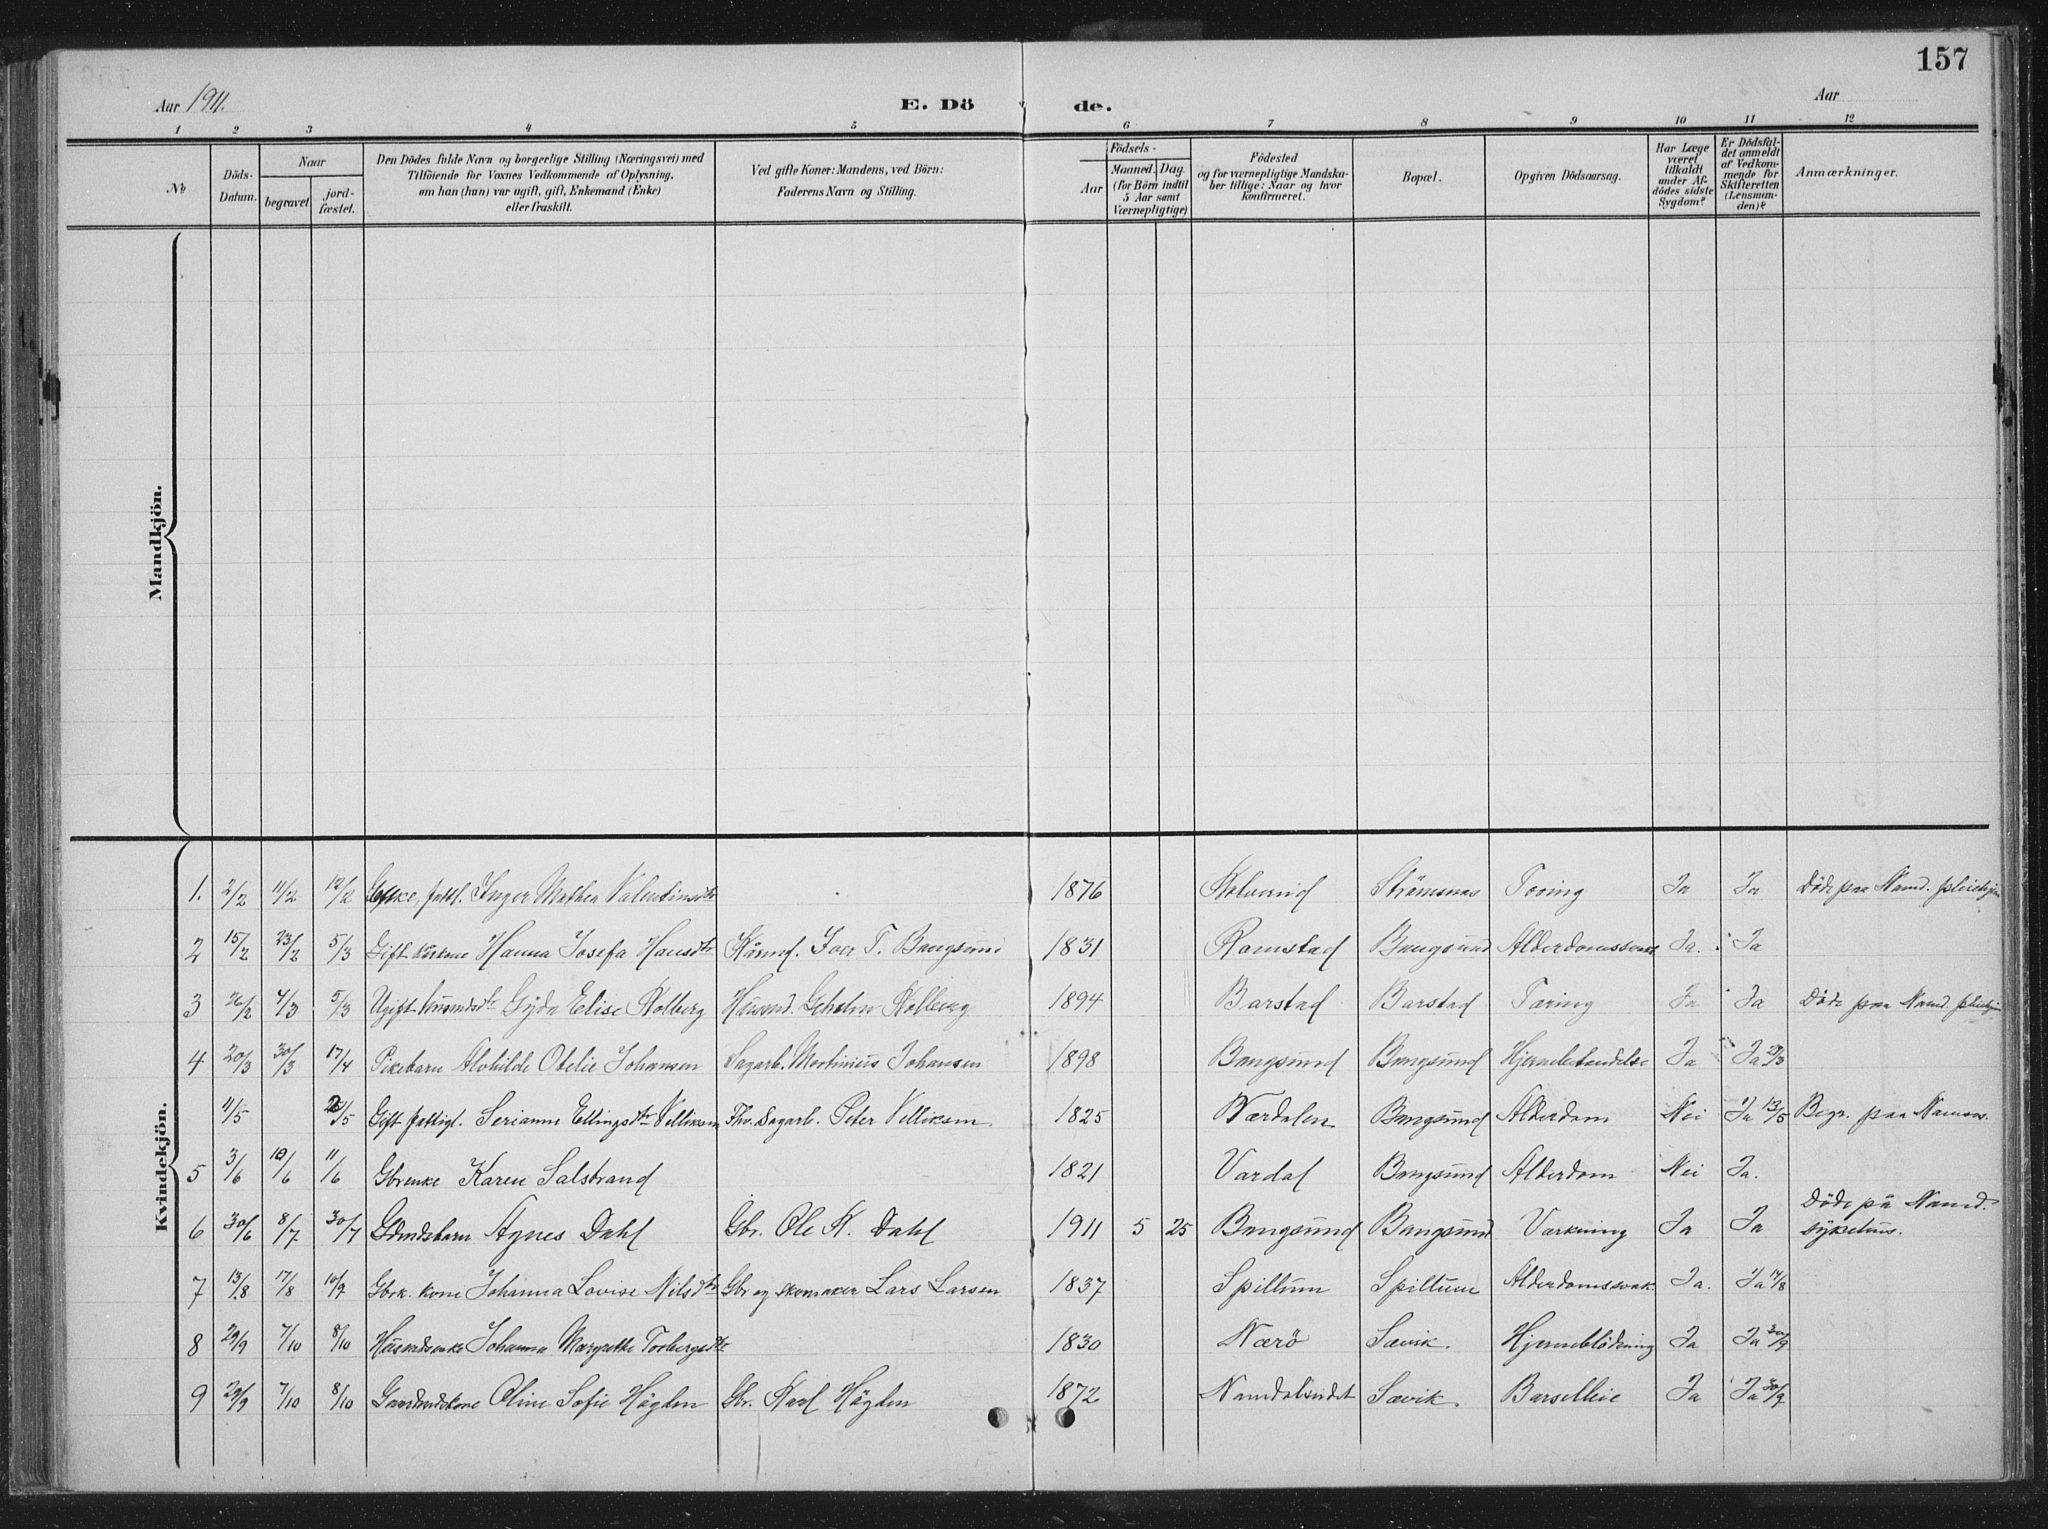 157
Aar 1911.
E. Dö de.
Aar
1 2 3 4 5 6 7 8 9 10 11 12
No
Döds-
Datum.
Naar
begravet
jord-
fæstet.
Den Dödes fulde Navn og borgerlige Stilling (Næringsvei) med
Tilföiende for Voxnes Vedkommende af Oplysning,
om han (hun) var ugift, gift, Enkemand (Enke)
eller fraskilt.
Ved gifte Koner: Mandens, ved Börn:
Faderens Navn og Stilling.
Födsels-
Aar
Maaned. Dag.
(for Börn indtil
5 Aar samt
Værnepligtige)
Födested
og for værnepligtige Mandska-
ber tillige: Naar og hvor
konfirmeret.
Bopæl.
Opgiven Dödsaarsag.
Har Læge
været
tilkaldt
under Af-
dödes sidste
Sygdom?
Er Dödsfal-
det anmeldt
af Vedkom-
mende for
Skifteretten
(Lensman-
den)?
Anmærkninger.
Mandkjön.
Kvindekjön.
1. 2/2 11/2 12/2 fattl. Inger Mathea Valentinsdtr 1876 Kolvereid Strömsnæs Tæring Ja Ja Döde paa Namd. pleiehjem
2 15/2 23/2 5/3 Gift Hanna Josefa Hansdtr Kårmd. Ioer T. Bangsund 1831 Ramstad Bangsund Alderdomssvak Ja. Ja
3 26/2 4/3 5/3 Ugift husmdsdtr Gyda Elise Kolberg Husmd. Kolberg 1894 Barstad Barstad Tæring Ja Ja Döde paa Namd. pleiehjem
4 20/3 30/3 17/4 Pikebarn Alvhilde Otelie Johansen Sagarb. Martinius Johansen 1898 Bangsund Bangsund Hjernebetændelse Ja Ja 29/3
11/5 25/5 Gift fattigl. Serianna Ellingsdtr Villiksen Fhv. Sagarb. Peter Villiksen 1825 Værdalen Bangsund Alderdom Nei Ja 13/5 Begr. paa Namsos.
5 3/6 10/6 11/6 Gbrenke Karen Salstrand 1821 Vardal Bangsund Alderdom Nei Ja.
6 30/6 8/7 30/7 Gdmdsbarn Agnes Dahl Gbr. Ole K. Dahl 1911 5 25 Bangsund Bangsund Værkning Ja Ja Döde på Namd.
sykehus.
7 13/8 17/8 10/9 Gbrk. kone Johanna Lovise Nilsdtr Gbr og skomaker Lars Larsen 1837 Spillum Spillum Alderdomssvak. Ja. Ja 17/8
8 29/9 7/10 8/10 Husmdsenke Johanna Margrethe Torbergsdtr 1830 Nærö Sævik. Hjerneblödning Ja Ja 30/9
9 29/9 7/10 8/10 Gaardmdskone Oline Sofie Högden Gbr. Karl Högden 1872 Namdalseidet Sævik. Barselleie Ja Ja 30/9